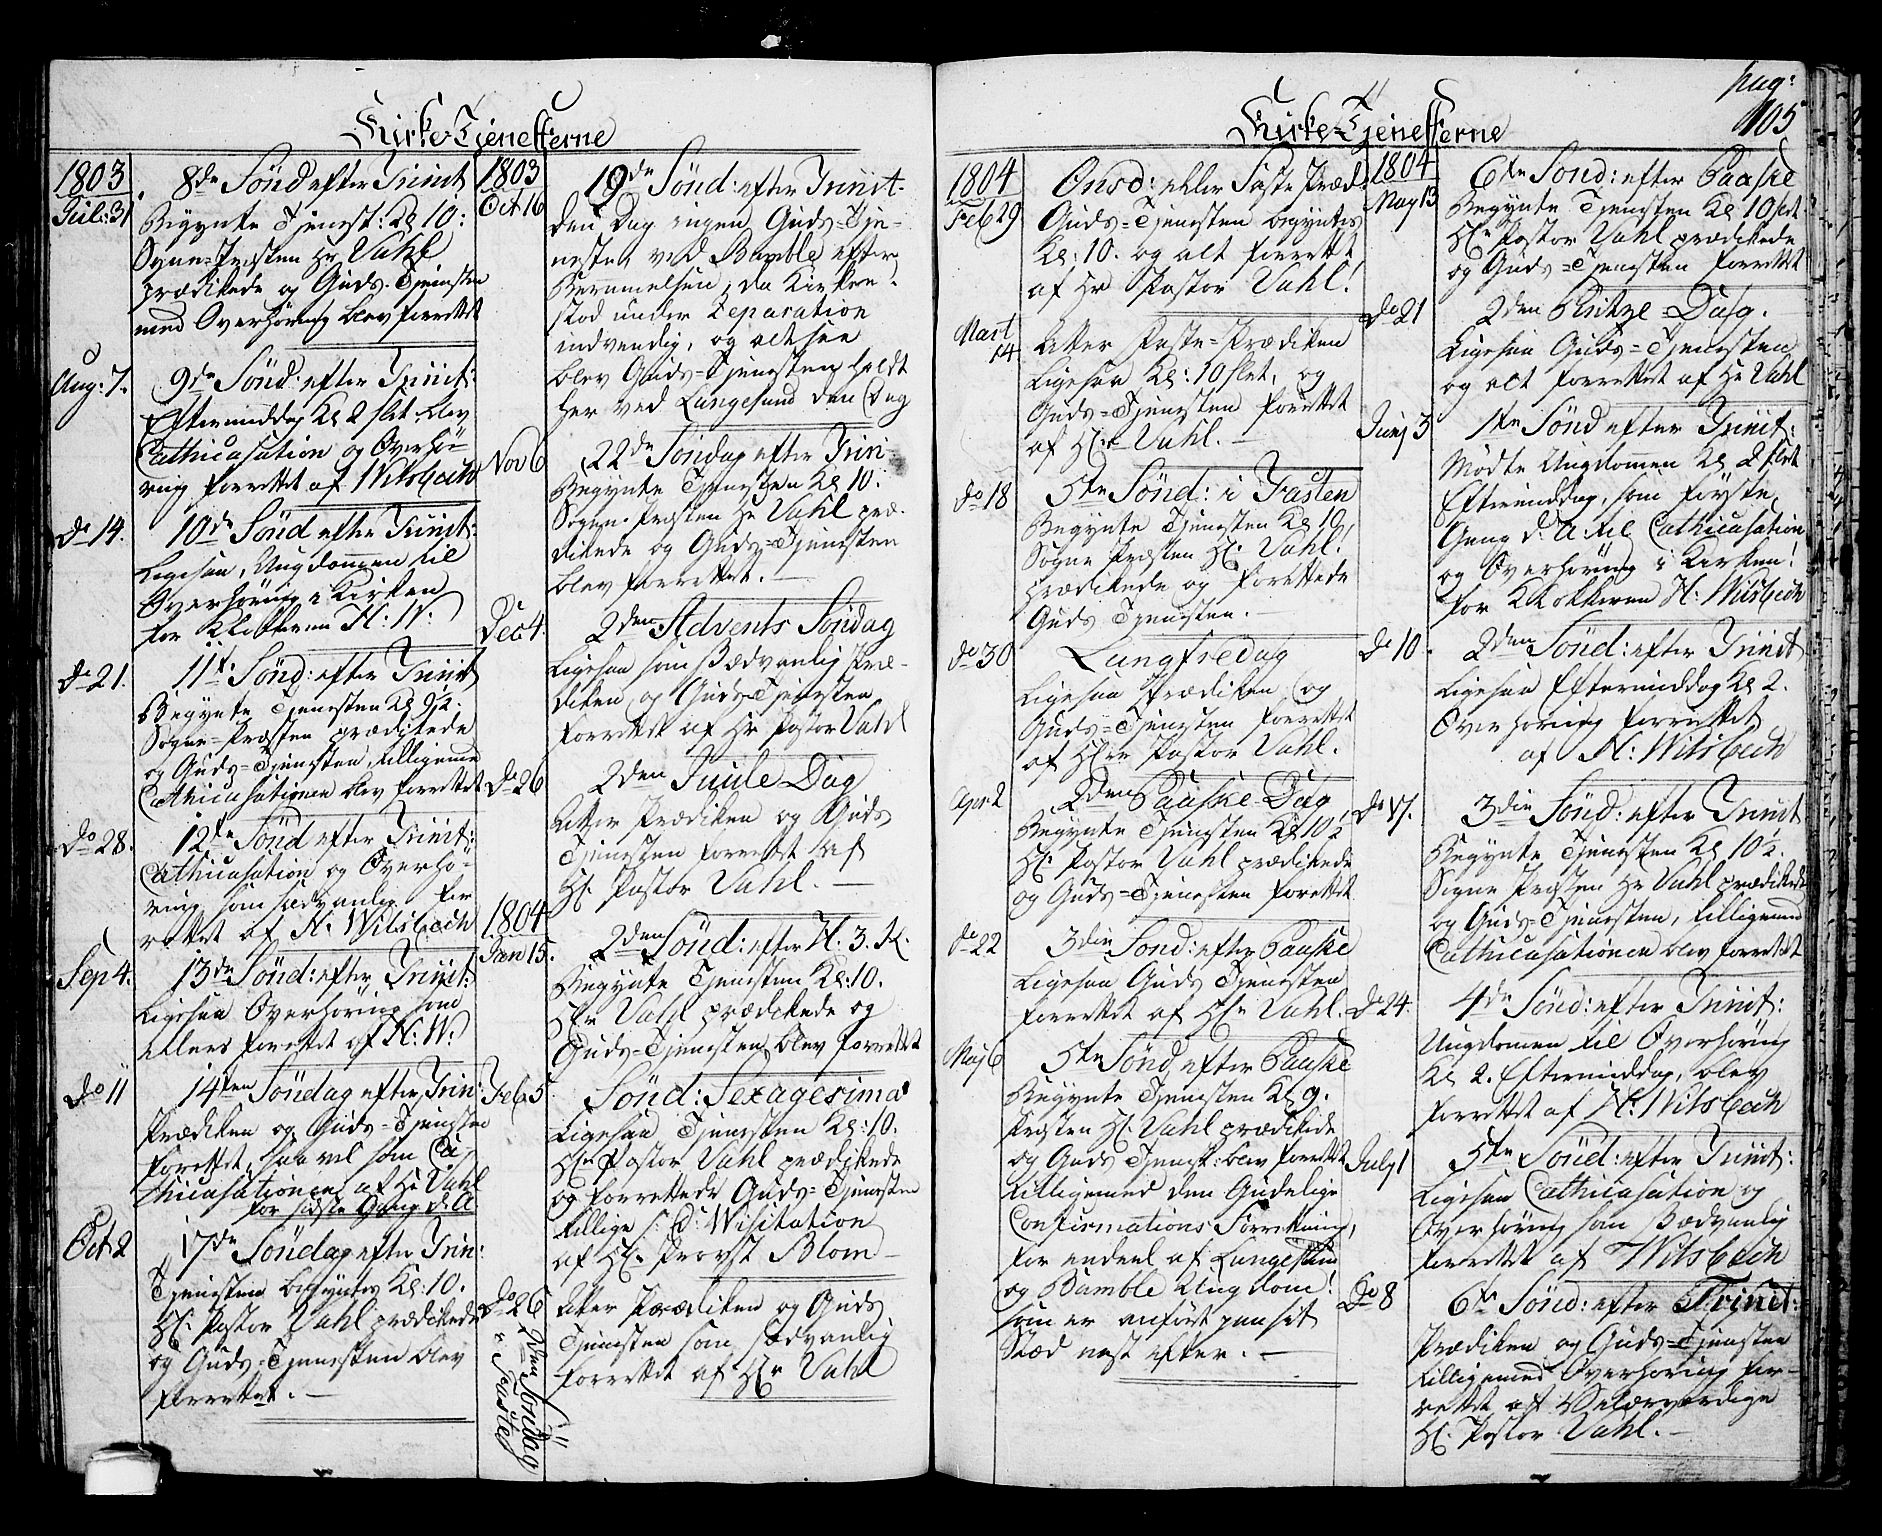 Kirke-Tjenesterne
1803
Juli: 31
8de Sönd efter Trinit
Begynte Tjenest: Kl 10:
Sogne-Præsten Hr Vahl
prædikede og Guds-Tjenesten
med Overhøring blev forrettet
Aug: 7.
9de Sönd: efter Trinit:
Eftermiddag Kl 2 slet blev
Cathicusation og Overhö-
ring forrettet af Wilsbech
do 14.
10de Sönd efter Trinit:
Ligesaa, Ungdommen til
Overhøring i Kirken
for Klokkeren H: W:
do 21.
11te Sönd: efter Trinit
Begynte Tjenesten Kl 9½.
Sogne-Præsten prædikede
og Guds-Tjenesten, tilligemed
Cathicusationen blev forrettet
do 28.
12te Sönd efter Trinit:
Cathicusation og Overhö-
ring som sædvanlig for
rettet af H: Wilsbech
Sep 4.
13de Sönd: efter Trinit:
Ligesaa Overhøring som
ellers forettet af H: W:
do 11
14ten Söndag efter Trin:
Prædiken og Guds-Tjenesten
forettet, saa vel som Ca,
thicusationen af Hr Vahl
for sidste Gang d: A
Oct 2
17de Söndag efter Trin:
Tjenesten begyntes Kl: 10.
Hr. Pastor Vahl prædikede
og Guds-Tjenesten blev
forrettet.
1803
Oct 16
19de Sönd: efter Trinit.
den Dag ingen Guds-Tje-
nesten ved Bamble efter
Berammelsen, da Kirken
stod under Reparation
indvendig, og altsaa
blev Guds-Tjenesten holdt
her ved Langesund den Dag
Nov 6
22de Söndag efter Trin:
Begynte Tjenesten Kl 10:
Sogne-Præsten Hr Vahl præ-
dikede og Guds-Tjenesten
blev forrettet.
Dec 4.
2den Advents Söndag
Ligesaa som sædvanlig Præ-
diken og Guds Tjenesten
forrettet af Hr Pastor Vahl
do 26
2den Juule Dag
Atter Prædiken og Guds
Tjenesten forrettet af
Hr. Pastor Vahl.
1804
Jan 15.
2den Sönd: efter H. 3. K.
Begynte Tjenesten Kl: 10.
Hr Vahl prædikede og
Guds-Tjenesten blev forrettet
Feb 5
Sönd: Sexagesima
Ligesaa Tjenesten Kl: 10.
Hr Pastor Vahl prædikede
og forrettede Guds-Tjenesten
tillige Wisitation
af Hr. Provst Blom
do 26 2den Söndag
i Faste
Atter Prædiken og Guds
Tjenesten som sædvanlig
forrettet af Hr Vahl
pag:
105
Kirke-Tjenesterne
1804
Feb 29
Onsd: eller Faste Præd:
Guds-Tjenesten begyntes
Kl: 10. og alt forrettet
af Hr Pastor Vahl!
Mart
14
Atter Faste-Prædiken
Ligesaa Kl: 10 slet, og
Guds-Tjenesten forettet
af Hr Vahl.
do 18
5te Sönd: i Fasten
Begynte Tjenesten Kl 10,
Sogne Præsten Hr. Vahl!
prædikede og forettede
Guds Tjenesten.
do 30
Langfredag
Ligesaa Prædiken, og
Guds-Tjenesten forrettet
af Herr Pastor Vahl.
Apr 2
2den Paaske-Dag
Begynte Tjenesten Kl 10½
Hr. Pastor Vahl prædikede
og Guds-Tjenesten forettet
do 22
3die Sönd: efter Paaske
Ligesaa Guds Tjenesten
forrettet af Hr Vahl.
May 6
5te Sönd efter Paaske
Begynte Tjenesten Kl 9.
Præsten Hr. Vahl prædikede
og Guds Tjenest: blev forrettet
tilligemed den Gudelige
Confirmations Forretning,
for endeel af Langesund
og Bamble Ungdom!
som er anfört paa sit
Stæd nest efter.
1804
May 13
6te Sönd: efter Paaske
Begynte Tjenesten Kl 10 slet
Hr Pastor Vahl prædikede
og Guds-Tjenesten forrettet
do 21
2den Pintze-Dag.
Ligesaa Guds-Tjenesten
og alt forrettet af Hr Vahl
Junj 3
1te Sönd efter Trinit:
Mödte Ungdomen Kl 2 slet
Eftermiddag, som förste
Gang d: A til Cathicusation
og Overhøring i Kirken!
for Klokkeren H: Wilsbech
do 10
2den Sönd: efter Trinit
Ligesaa Eftermiddag Kl 2.
Overhøring forrettet
af H: Wilsbech
do 17.
3die Sönd: efter Trinit
Begynte Tjenesten Kl 10½.
Sogne Præsten Hr Vahl prædikede
og Guds-Tjenesten, tilligemed
Cathicusationen blev forrettet
do 24.
4de Sönd: efter Trinit:
Ungdomen til Overhøring
Kl 2. Eftermiddag, blev
forrettet af H: Wilsbech
July 1
5te Sönd: efter Trinit:
Ligesaa Cathicusation og
Overhøring som sædvanlig
forrettet af Wilsbech
do 8
6te Sönd: efter Trinit:
Prædiken og Guds-Tjenesten
tilligemed Overhøring for-
rettet af Velærværdige
Hr. Pastor Vahl.